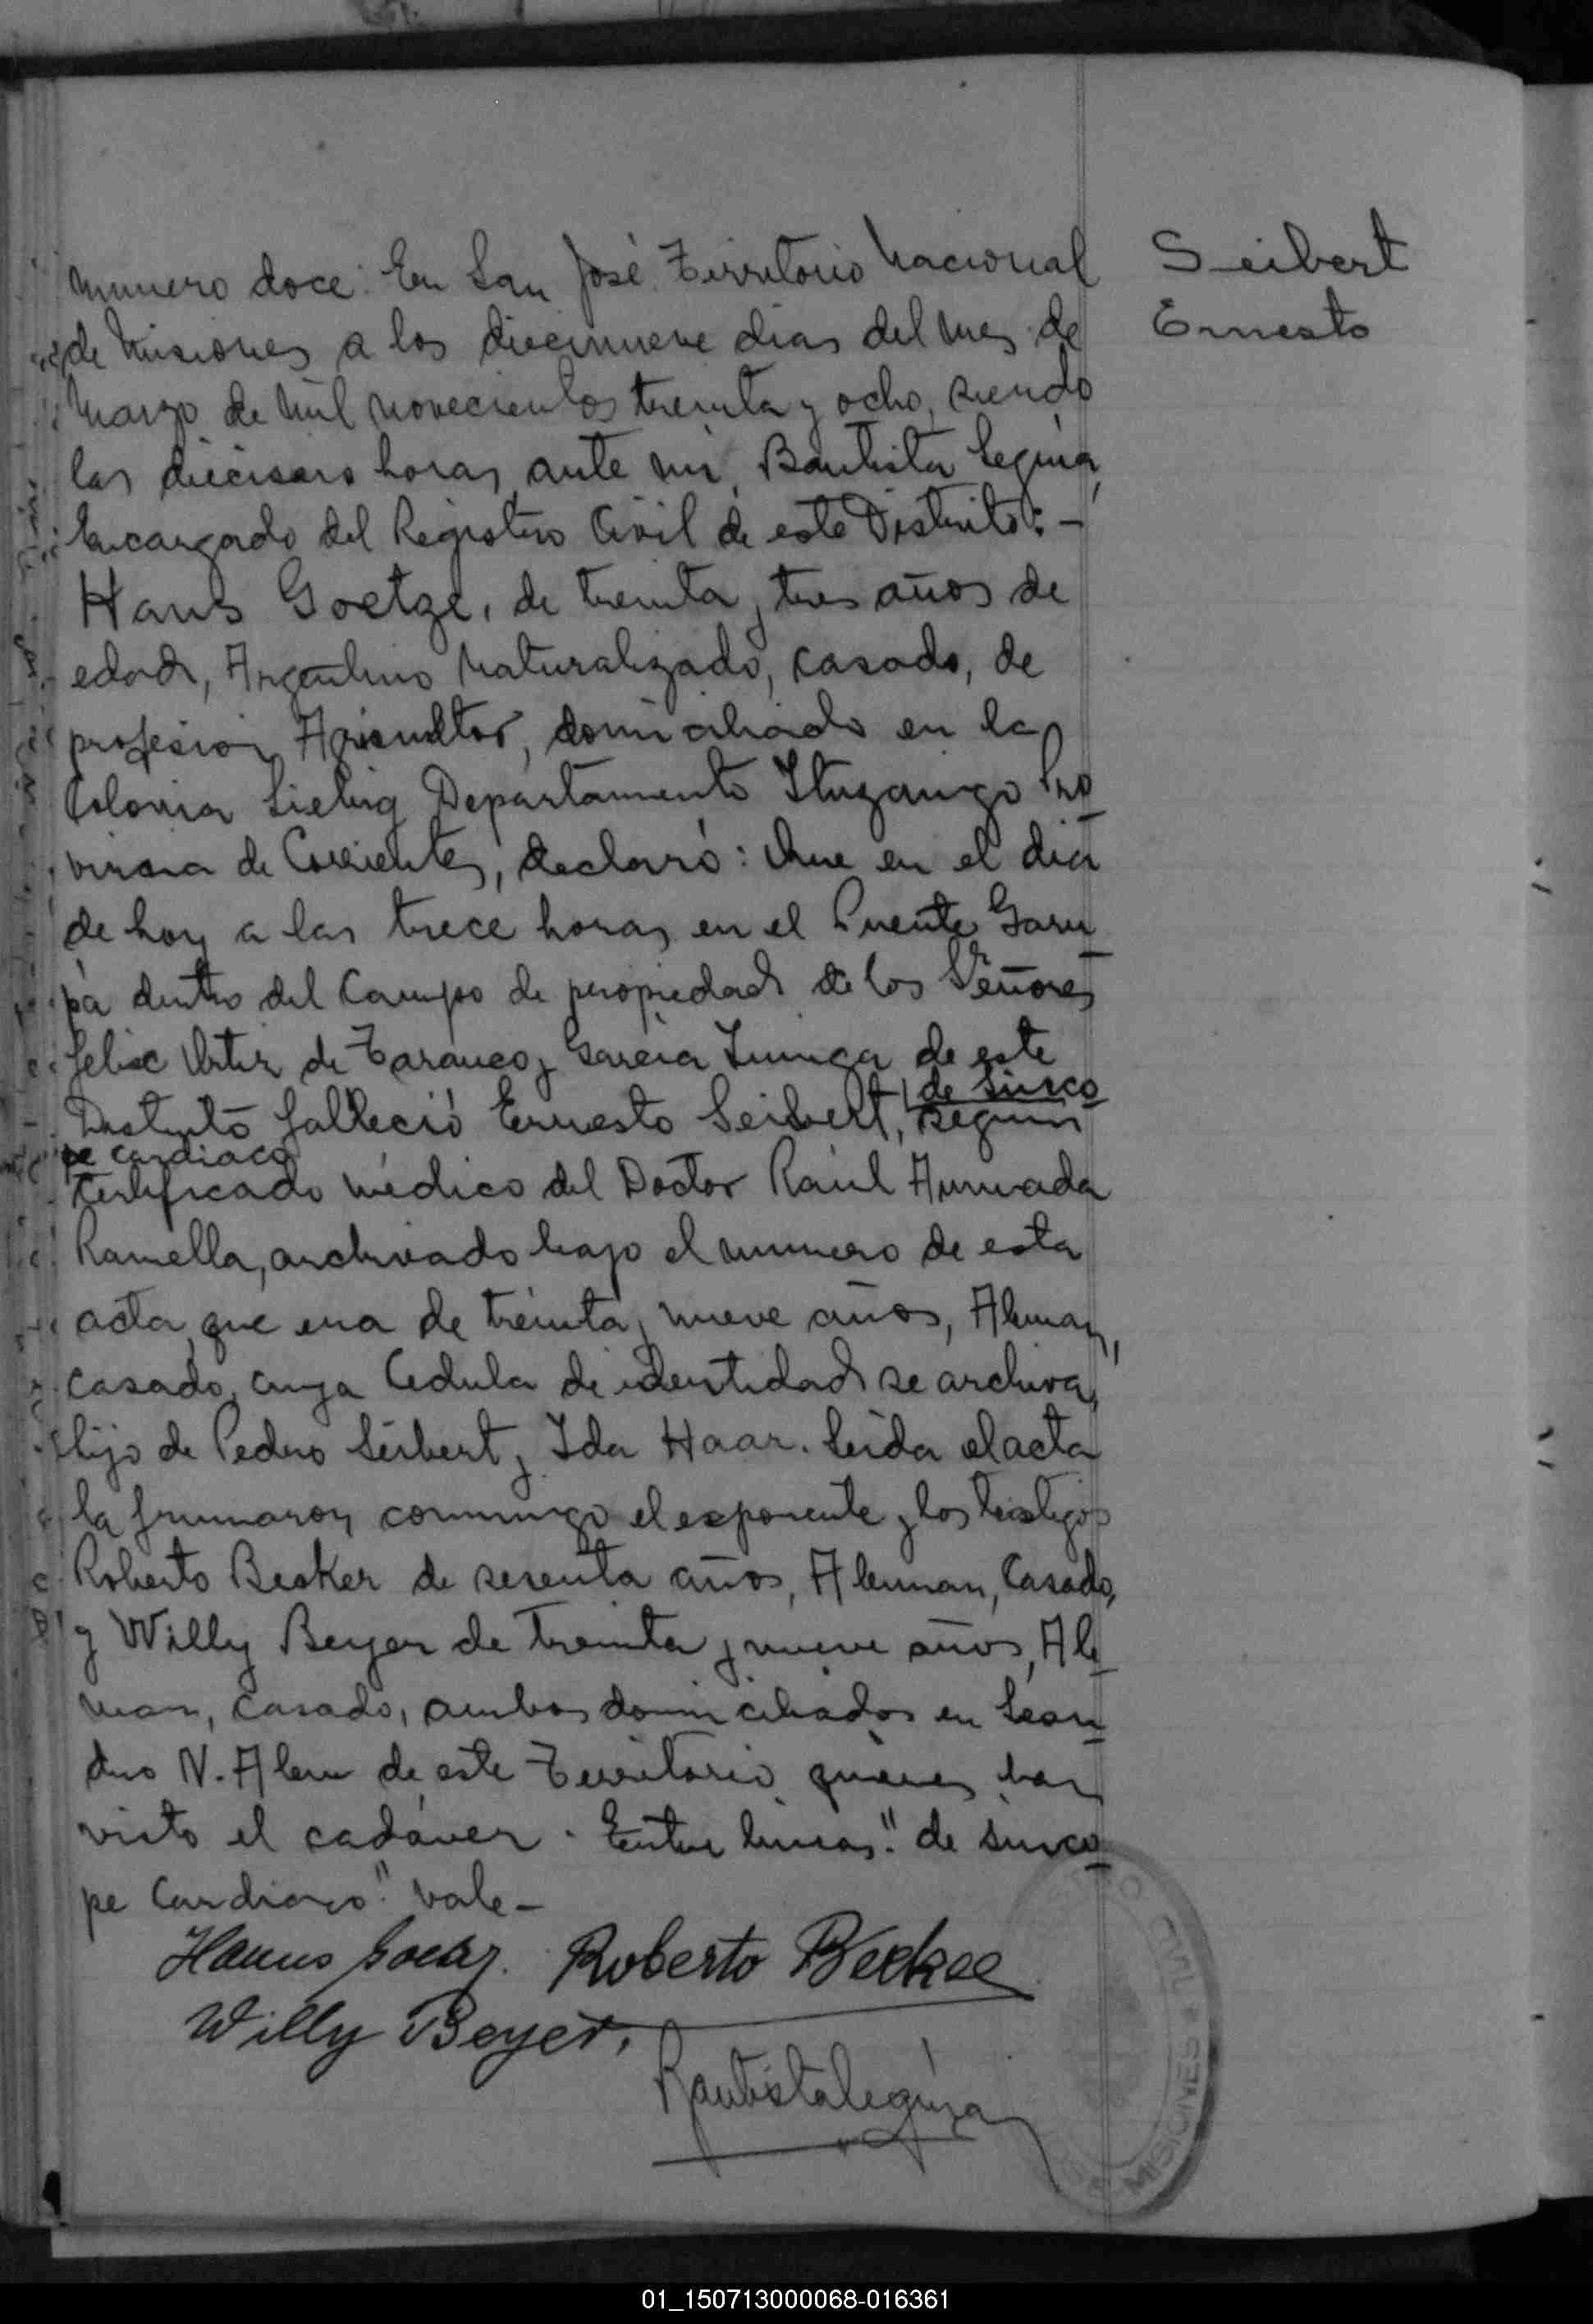 Seibert
Ernesto
Numero doce: En San José Territorio Nacional
de Misiones a los diecinueve dias del mes de
Marzo de Mil novecientos treinta y ocho, siendo
las dieciseis horas, ante mi, Bautista Leguia,
Encargado del Registro Civil de este Distrito: -
Hans Goetze, de treinta y tres años de
edad, Argentino Naturalizado, casado, de
profesion Agricultor, domiciliado en la
Colonia Liebig Departamento Ituzaingo Pro
vincia de Corrientes, declaró: Que en el dia
de hoy a las trece horas, en el Puente Garu
pá dentro del Campo de propiedad de los Señores
Felix de Taranco y Garcia Zuniga de este
Distrito falleció Ernesto Seibert, de sinco
pe cardiaco segun
certificado médico del Doctor Raúl Ahumada
Ramella, archivado bajo el numero de esta
acta, que era de treinta y nueve años, Aleman,
casado, cuya Cedula de identidad se archiva,
hijo de Pedro Seibert y Ida Haar. Leida el acta
la firmaron conmigo el exponente y los testigos
Roberto Becker de sesenta años, Aleman, Casado,
y Willy Beyer de treinta y nueve años, Ale
man, casado, ambos domiciliados en Lean
dro N. Alem de este Territorio quienes han
visto el cadáver. Entre lineas: "de sinco
pe Cardiaco" vale -
Hanns Goetze. Roberto Becker
Willy Beyer.
Bautista Leguia
CIVIL
MISIONES
01_150713000068-016361